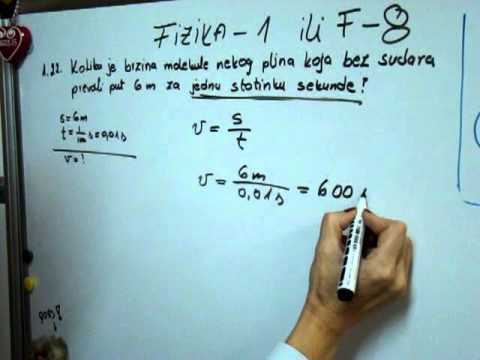 FIZIKA - 1 ili F-8
1.22. Kolika je brzina molekule nekog plina koja bez sudara
prevali put 6 m za jednu stotinku sekunde?
s = 6m
t = 1/100 s = 0,01s
v = ?
v = s/t
v = 6m/0,01s = 600